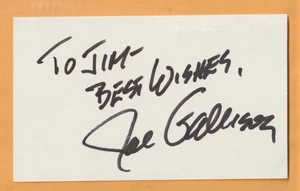 To Jim-
Best Wishes,
Joe Gallison